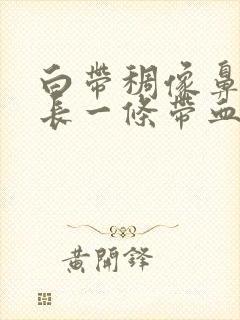 白帶稠像鼻
長一條帶血
黃開鋒